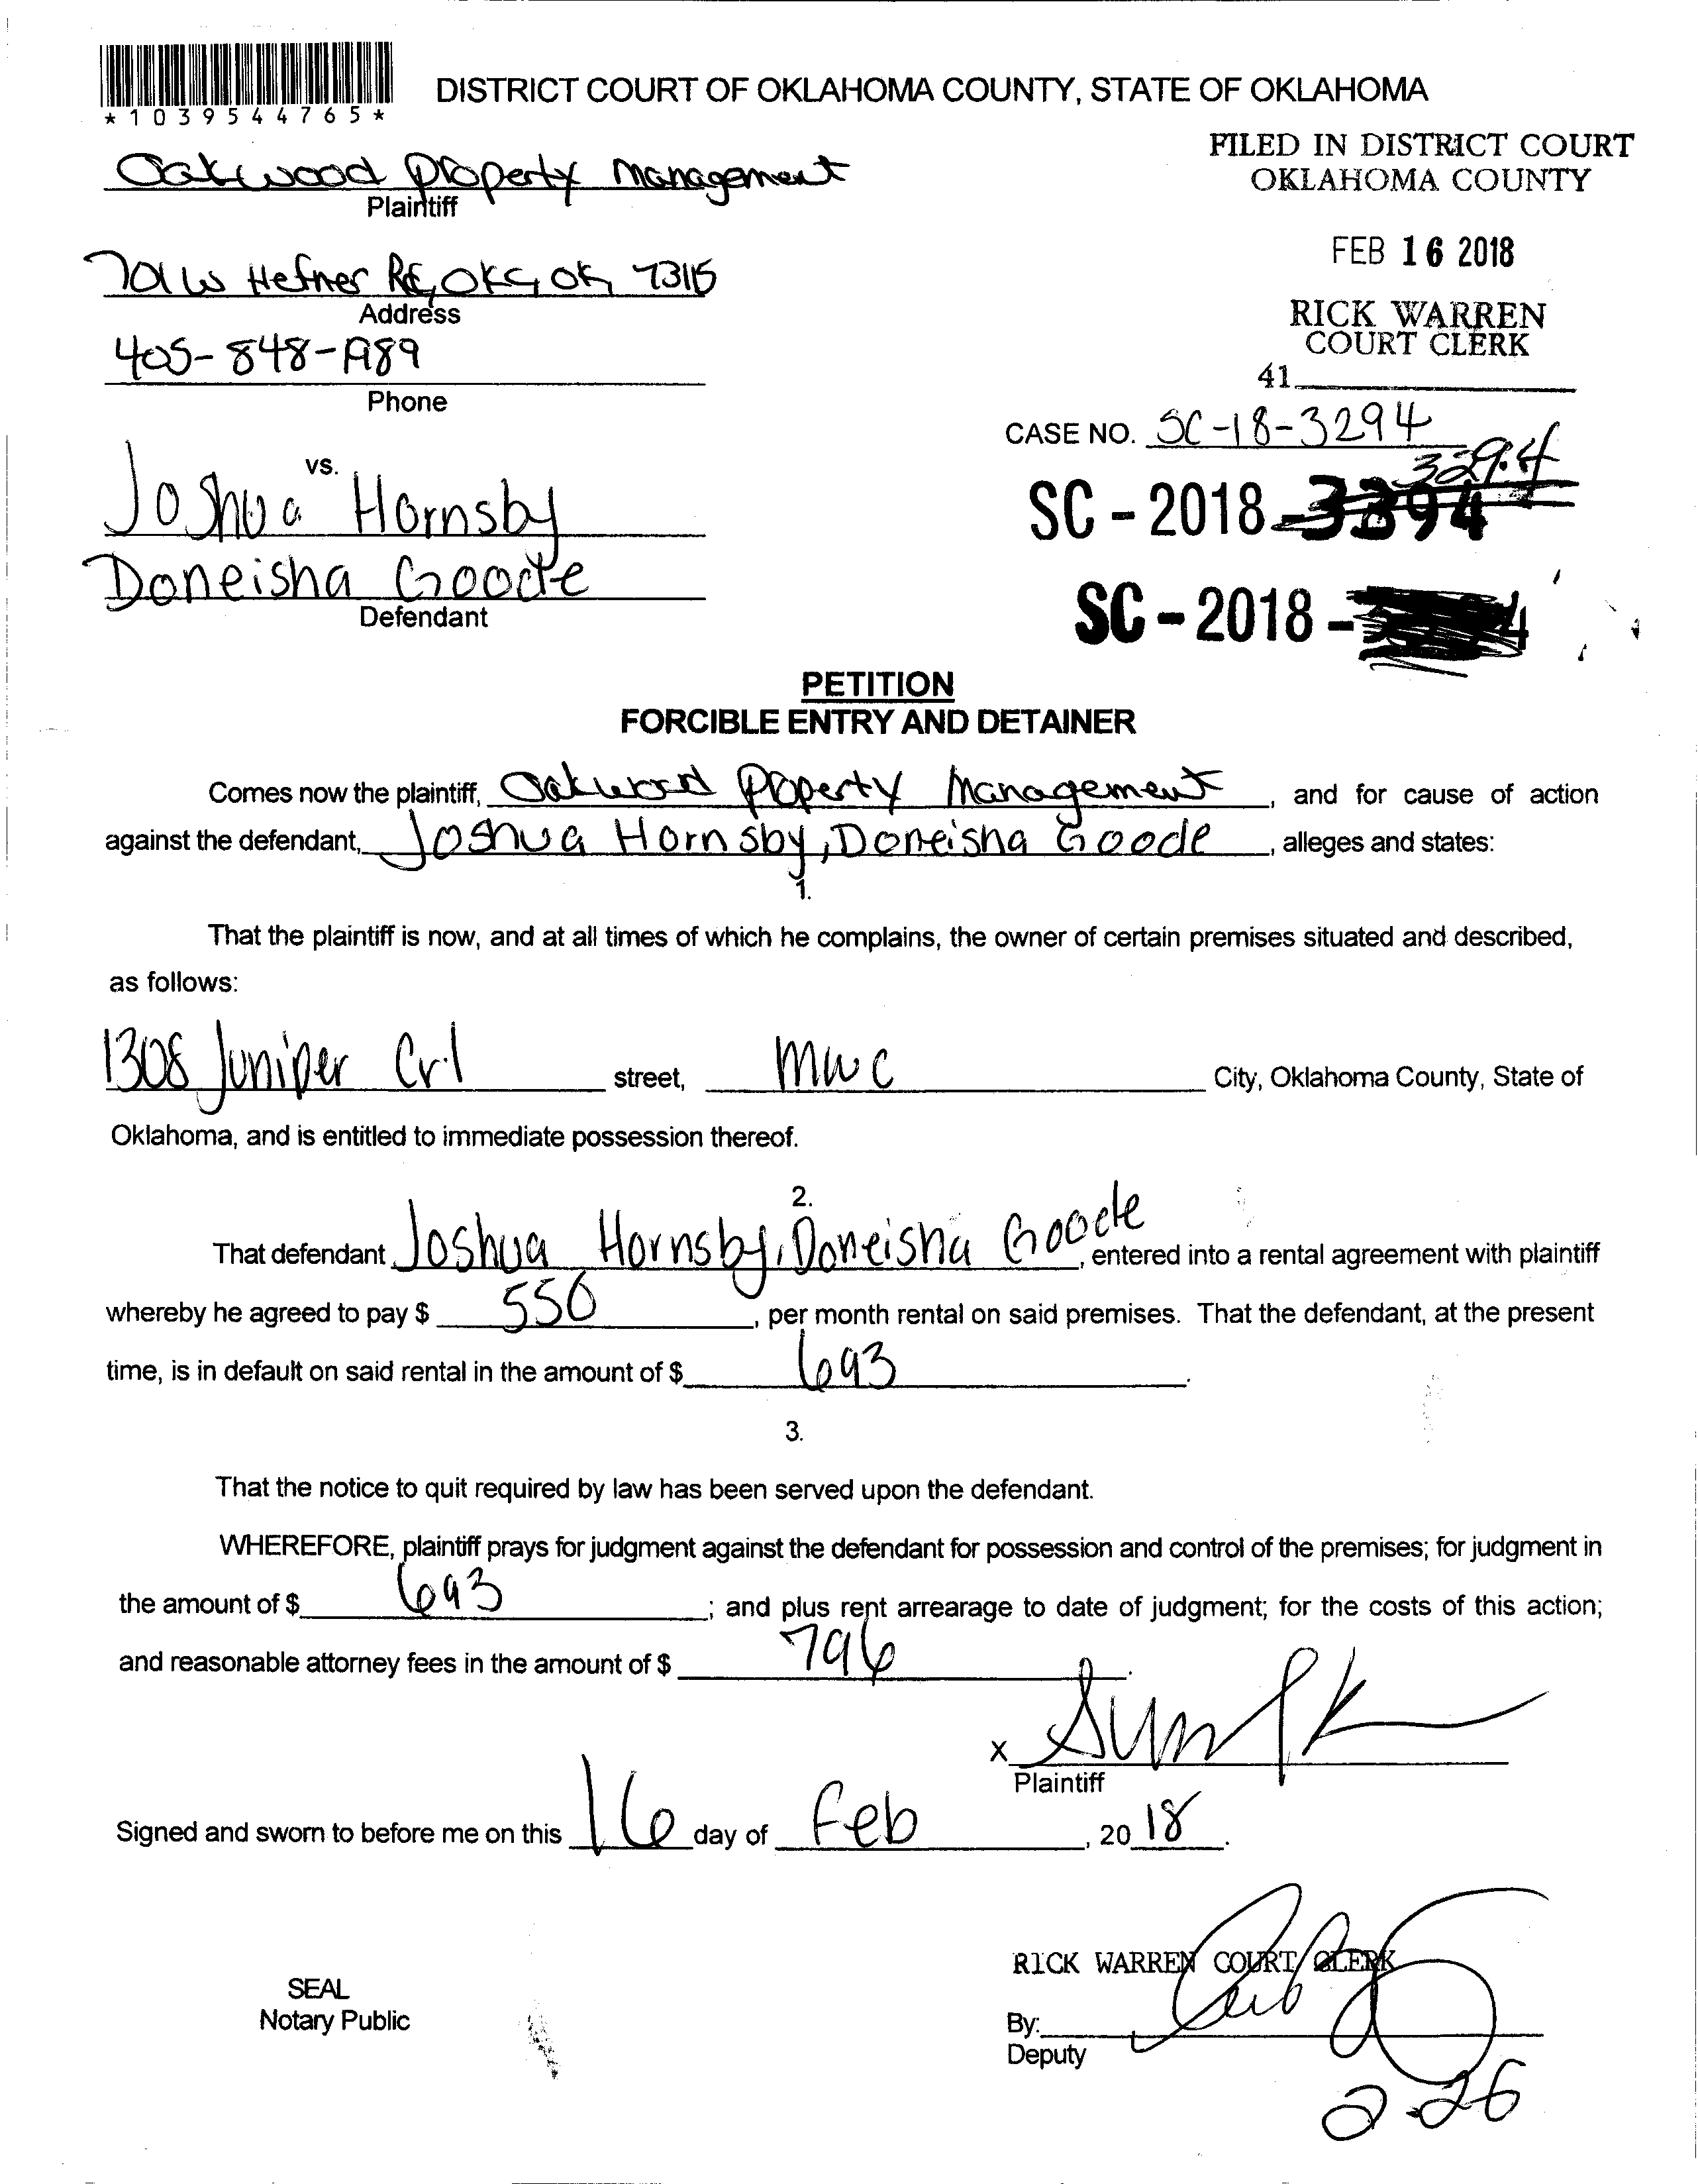 *1039544765*
DISTRICT COURT OF OKLAHOMA COUNTY, STATE OF OKLAHOMA
FILED IN DISTRICT COURT
OKLAHOMA COUNTY
Oakwood Property Management
Plaintiff
FEB 16 2018
701 W Hefner Rd, OKC, OK, 73115
Address
RICK WARREN
COURT CLERK
405-848-1989
Phone
41
CASE NO. SC-18-3294
vs.
3294
SC - 2018 -
Joshua Hornsby
Doneisha Goode
Defendant
SC - 2018 -
PETITION
FORCIBLE ENTRY AND DETAINER
Comes now the plaintiff, Oakwood Property Management, and for cause of action
against the defendant, Joshua Hornsby, Doneisha Goode, alleges and states:
1.
That the plaintiff is now, and at all times of which he complains, the owner of certain premises situated and described,
as follows:
1308 Juniper Crl street, MWC City, Oklahoma County, State of
Oklahoma, and is entitled to immediate possession thereof.
2.
That defendant Joshua Hornsby, Doneisha Goode, entered into a rental agreement with plaintiff
whereby he agreed to pay $ 550, per month rental on said premises. That the defendant, at the present
time, is in default on said rental in the amount of $ 693.
3.
That the notice to quit required by law has been served upon the defendant.
WHEREFORE, plaintiff prays for judgment against the defendant for possession and control of the premises; for judgment in
the amount of $ 693; and plus rent arrearage to date of judgment; for the costs of this action;
and reasonable attorney fees in the amount of $ 796.
X
Plaintiff
Signed and sworn to before me on this 16 day of Feb, 20 18.
RICK WARREN COURT CLERK
SEAL
Notary Public
By:
Deputy
2-26